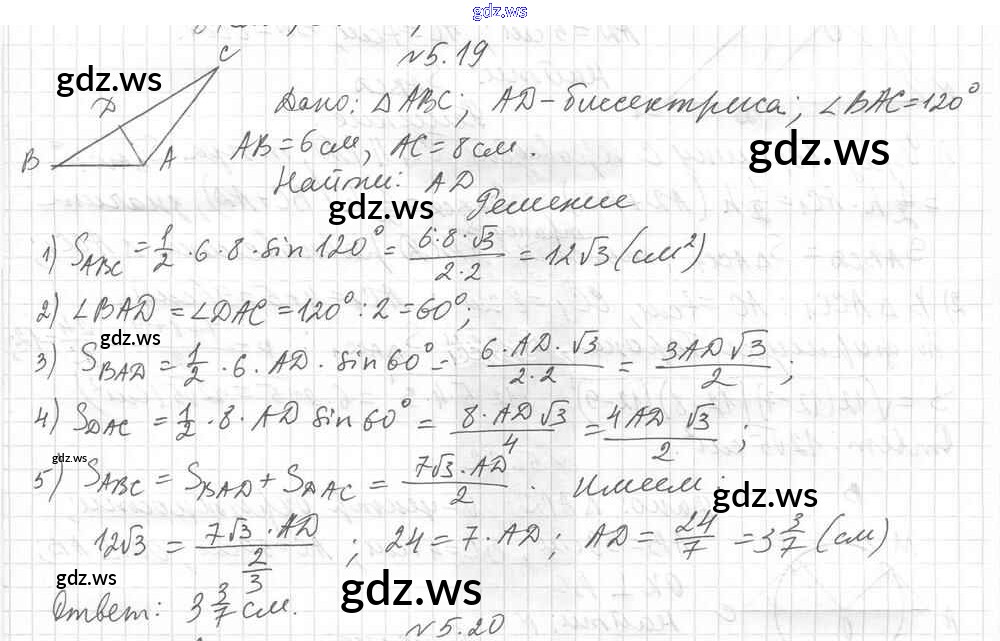 gdz.ws
№5.19
C
gdz.ws
D
B
A
Дано: △ABC; AD - биссектриса; ∠BAC = 120°
AB = 6 см, AC = 8 см.
gdz.ws
Найти: AD
gdz.ws
Решение
1) S_ABC = 1/2 · 6 · 8 · sin 120° = (6·8·√3)/(2·2) = 12√3 (см²)
2) ∠BAD = ∠DAC = 120° : 2 = 60°;
gdz.ws
3) S_BAD = 1/2 · 6 · AD · sin 60° = (6·AD·√3)/(2·2) = (3AD√3)/2;
4) S_DAC = 1/2 · 8 · AD sin 60° = (8·AD√3)/4 = (4AD √3)/2;
gdz.ws
5) S_ABC = S_BAD + S_DAC = (7√3·AD)/2. Имеем:
gdz.ws
12√3 = (7√3·AD)/2; 24 = 7·AD; AD = 24/7 = 3 3/7 (см)
gdz.ws
gdz.ws
Ответ: 3 3/7 см.
№5.20